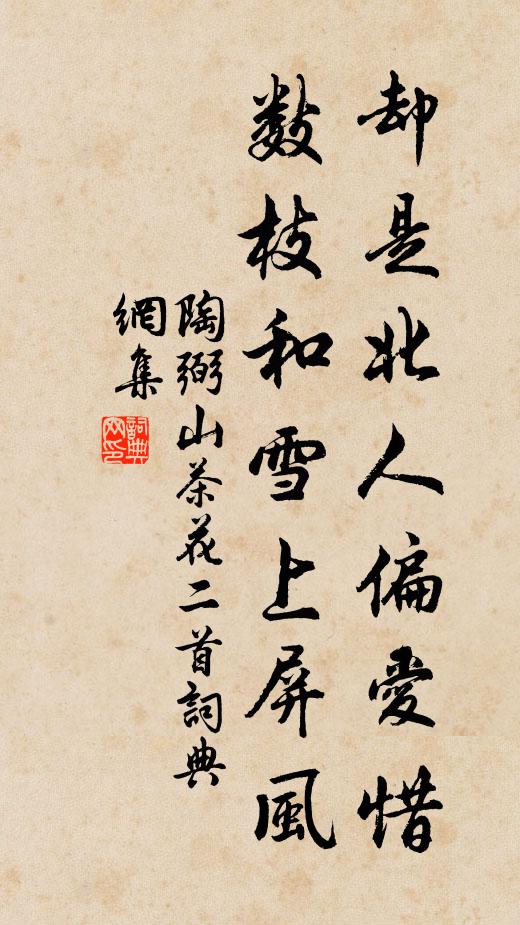 却是北人偏愛惜
數枝和雪上屏風
陶弼山茶花二首詞典
網集
詞典
网印